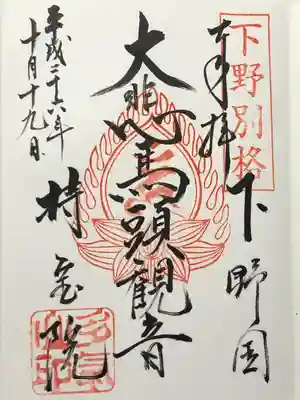 下野別格
奉拝
下野国
大悲馬頭観音
持宝院
平成二十六年
十月十九日